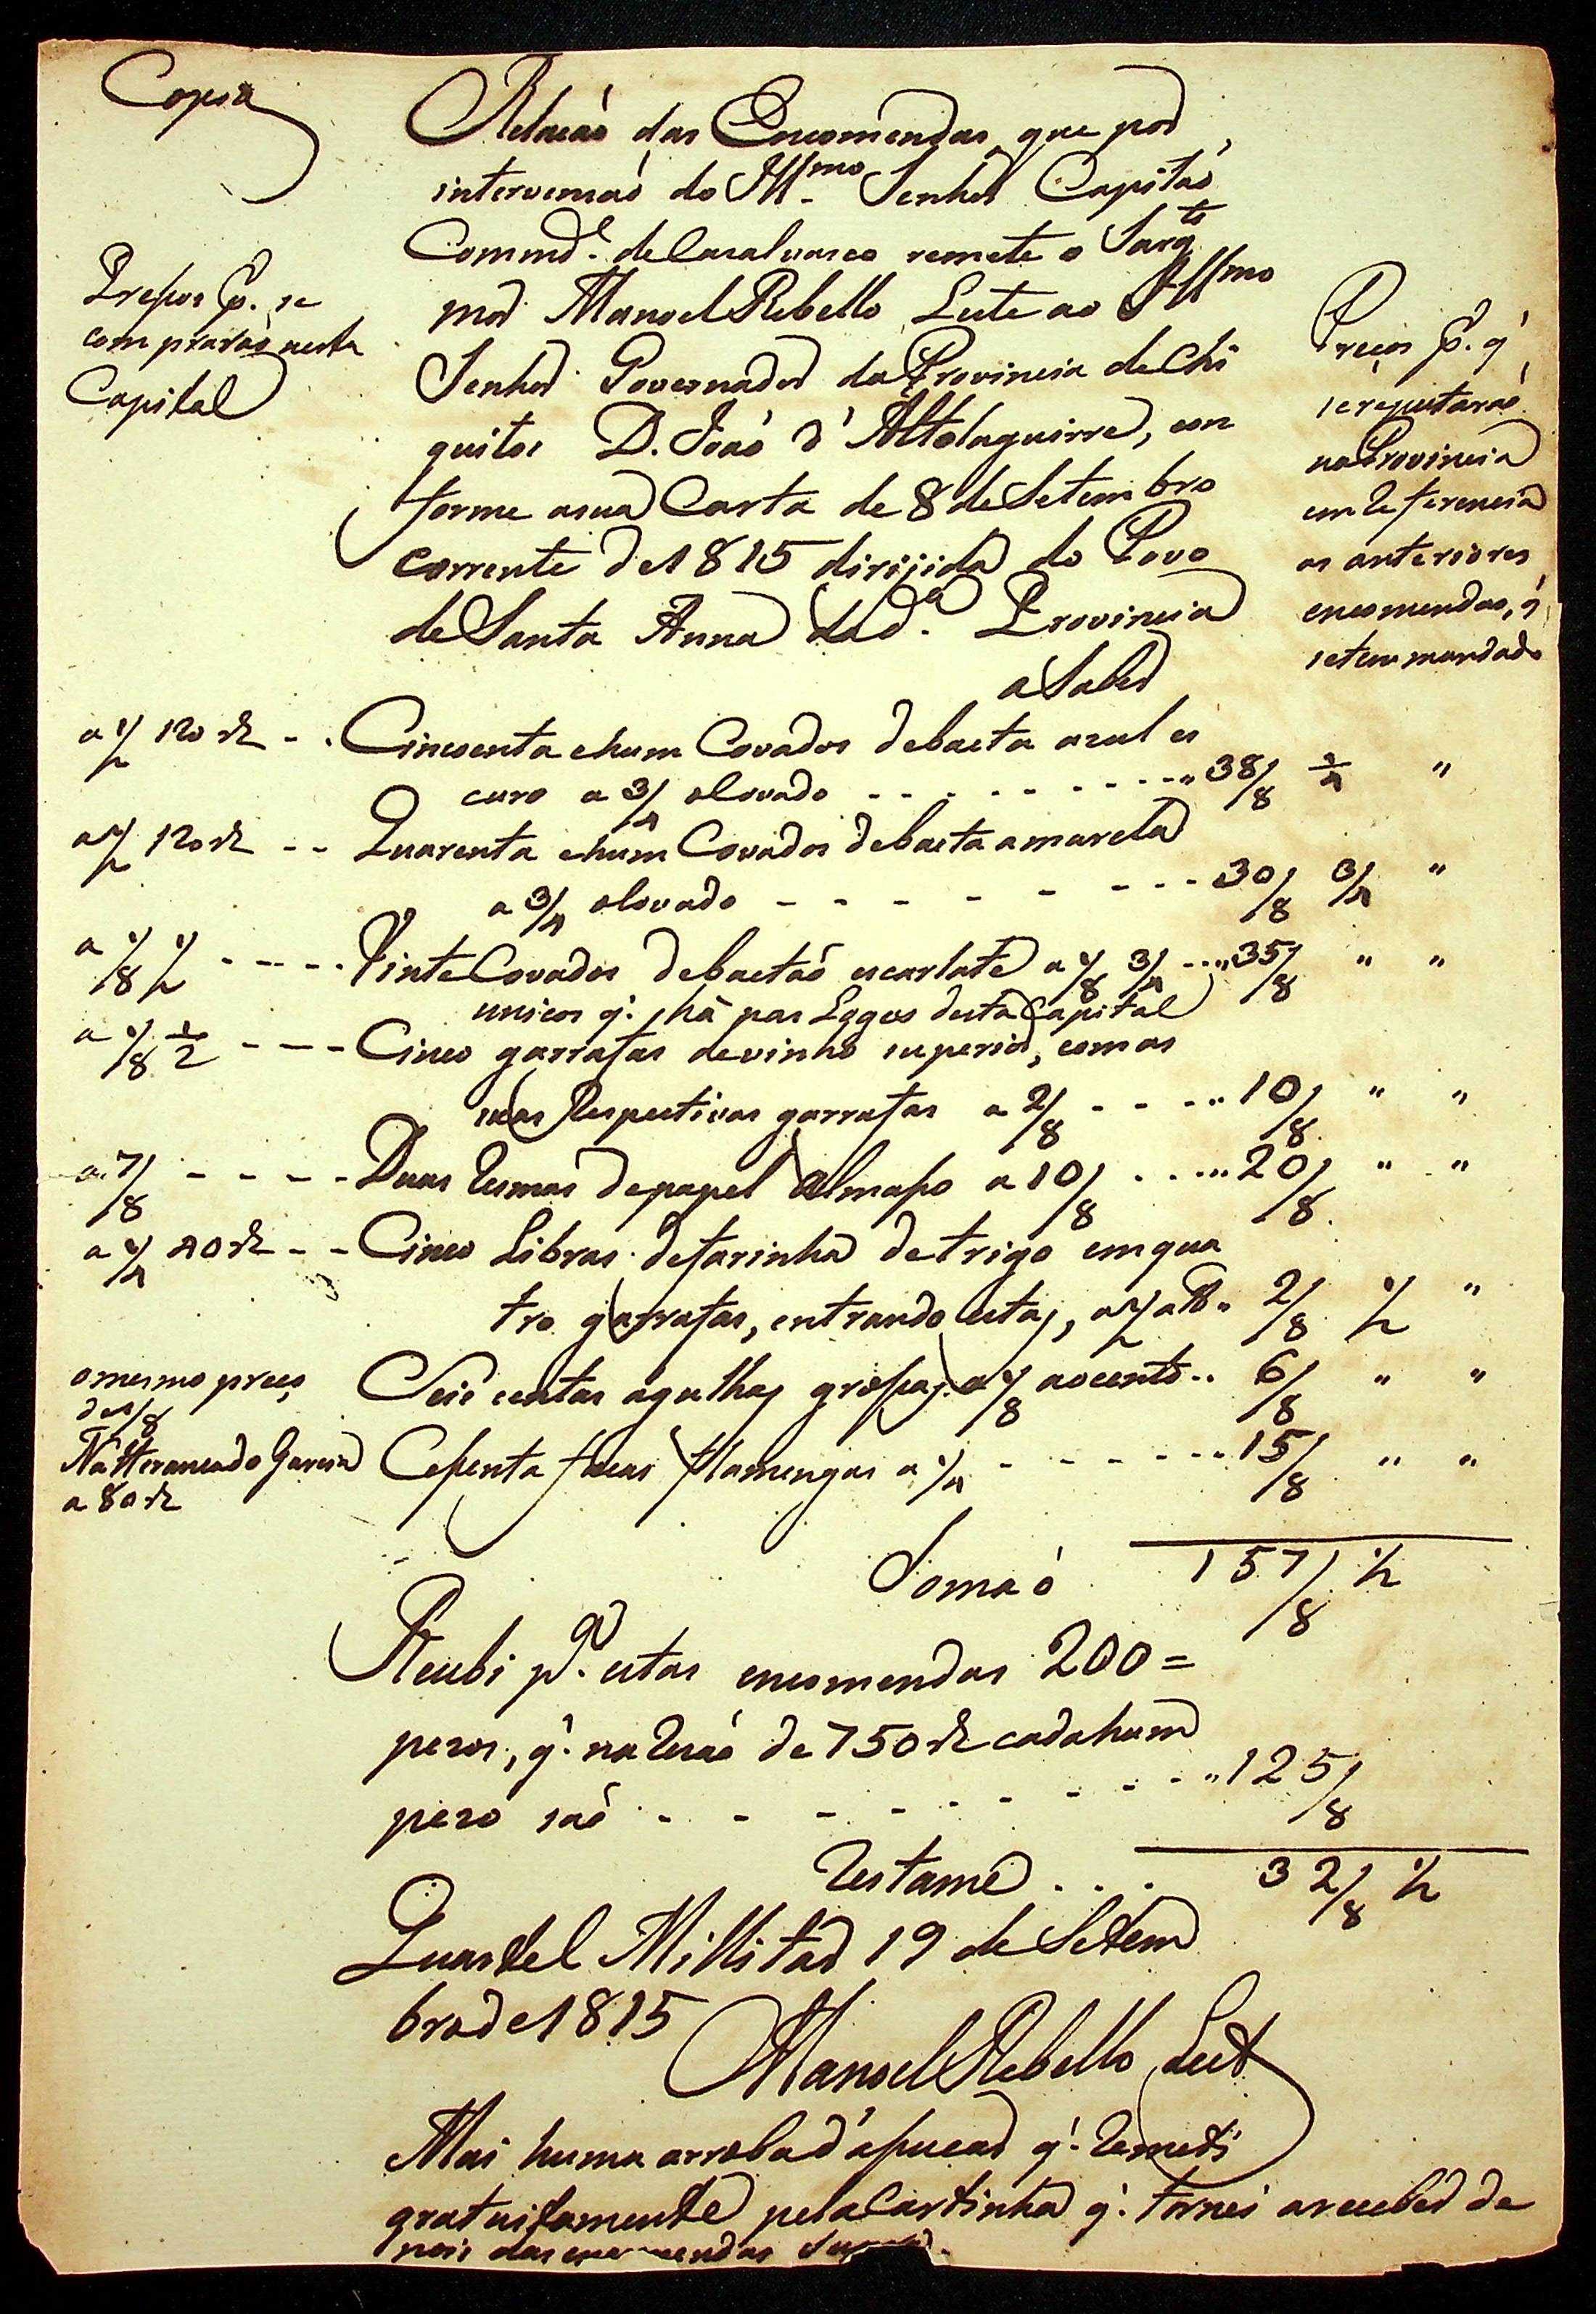 Copia
Relacaõ das Encomendas, que por
intervencaõ do Illmo Senhor Capitaõ
Commde. de Casalvasco remete o Sargto
mor Manoel Rebello Leite ao Illmo
Senhor Governador da Provincia de Chi
quitos D. Joaõ d'Altolaguirre, con
forme a sua Carta de 8 de Setembro
corrente de 1815 dirijida do Povo
de Santa Anna da da. Provincia
a Saber
Pressos pr. se
compraraõ nesta
Capital
Precos pr. q'
se reputaraõ
na Provincia
em Referencia
as anteriores
encomendas, q'
se tem mandado
a 1/2 120 rs - - Cincoenta e hum Covados de baeta azul es
curo a 3/4 o Covado - - - - - - - - - " 38/8 1/4 "
a 1/2 120 rs - - Quarenta e hum Covados de baeta amarela
a 3/4 o Covado - - - - - - - - 30/8 3/4 "
a 1/8 1/2 - - - - Vinte Covados de baetaõ escarlate a 1/8 3/4 - - " 35/8 " "
unicos q'. há nas Loges desta Capital
a 1/8 1/2 - - - Cinco garrafas de vinho superior, com as
suas Respectivas garrafas a 2/8 - - - " 10/8 " "
a 7/8 - - - - Duas Resmas de papel Almasso a 10/8 - - - " 20/8 " "
a 1/4 40 rs - - Cinco Libras de farinha de trigo em qua
tro garrafas, entrando estas, a 1/2 a lb. 2/8 1/2 "
o mesmo preco
de 1/8
Seis centas agulhas grossas a 1/8 ao cento - - 6/8 " "
Na Heranca do Garcia
a 80 rs
Cessenta facas flamengas a 1/4 - - - - - " 15/8 " "
Somaõ 157/8 1/2
Recebi pa. estas encomendas 200 =
pezos, q'. na Rezaõ de 750 rs cada hum
pezo saõ - - - - - - - - - " 125/8
Restame - - - 32/8 1/2
Quartel Millitar 19 de Setem
bro de 1815
Manoel Rebello Leite
Mais huma arroba d'assucar q'. Remeti
gratuitamente pela Cartinha q'. tornei a receber de
pois das encomendas